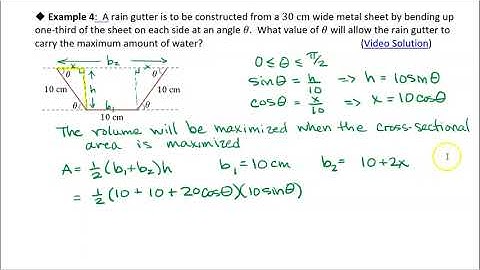 ◆ Example 4: A rain gutter is to be constructed from a 30 cm wide metal sheet by bending up
one-third of the sheet on each side at an angle θ. What value of θ will allow the rain gutter to
carry the maximum amount of water? (Video Solution)
b₂
x x
θ θ
10 cm h 10 cm
θ θ
10 cm
0 ≤ θ ≤ π/2
sinθ = h/10 => h = 10sinθ
cosθ = x/10 => x = 10cosθ
The volume will be maximized when the cross-sectional
area is maximized
A = ½(b₁+b₂)h b₁ = 10cm b₂ = 10+2x
= ½(10 + 10 + 20cosθ)(10sinθ)